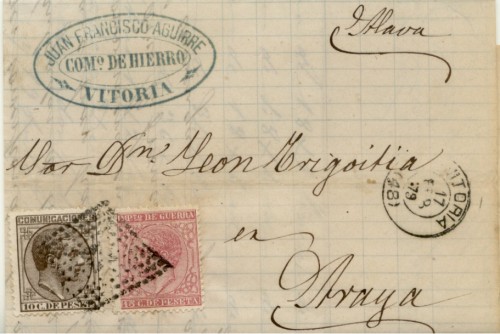 JUAN FRANCISCO AGUIRRE
COMO. DE HIERRO
VITORIA
Alava
Dn. Leon Trigoitia
en
Araya
VITORIA
17
79
(48)
COMUNICACIONES
10 C. DE PESETA
IMPTO. DE GUERRA
15 C. DE PESETA